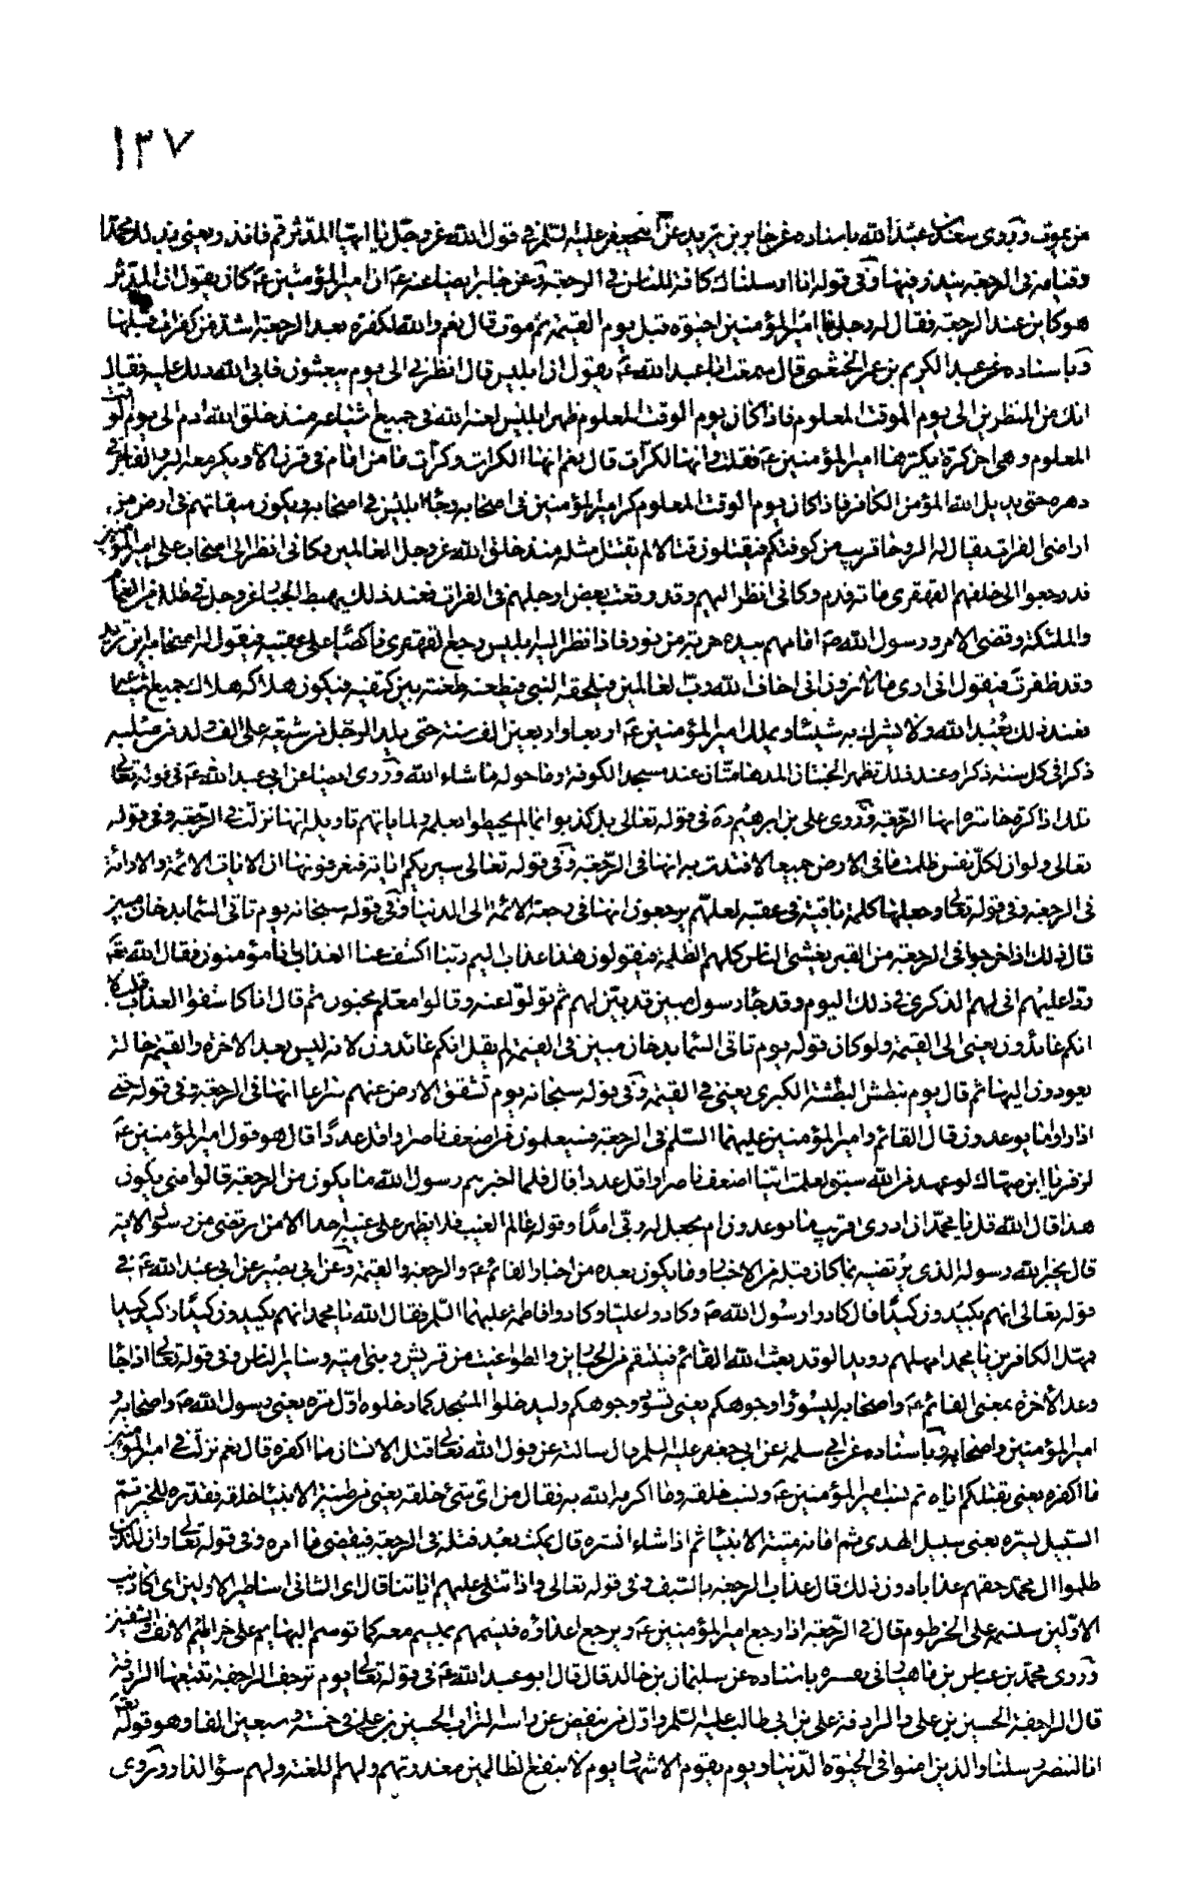 ١٣٧
من يموت وروى سعد بن عبد الله باسناده عن جابر بن يزيد عن ابي جعفر عليه السلم في قول الله عز وجل يا ايها المدثر قم فانذر يعني بذلك محمدا
وقيامه في الرجعة ينذر فيها وفي قوله انا ارسلناك كافة للناس في الرجعة وعن جابر ايضا عنه ع ان امير المؤمنين ع كان يقول ان المدثر
هو كاين عند الرجعة فقال له رجل يا امير المؤمنين احيوة قبل يوم القيمة ثم موت قال نعم والله لكفرة بعد الرجعة اشد من كفرات قبلها
وباسناده عن عبد الكريم بن عمر الخثعمي قال سمعت ابا عبد الله ع يقول ان ابليس قال انظرني الى يوم يبعثون فابى الله ذلك عليه فقال
انك من المنظرين الى يوم الوقت المعلوم فاذا كان يوم الوقت المعلوم ظهر ابليس لعنه الله في جميع اشياعه منذ خلق الله ادم الى يوم الوقت
المعلوم وهي اخر كرة يكرها امير المؤمنين ع فقلت وانها لكرات قال نعم انها لكرات وكرات ما من امام في قرن الا ويكر معه البر والفاجر في
دهره حتى يديل الله المؤمن الكافر فاذا كان يوم الوقت المعلوم كر امير المؤمنين في اصحابه وجاء ابليس في اصحابه ويكون ميقاتهم في ارض من
اراضي الفرات يقال له الروحا قريب من كوفتكم فيقتلون قتالا لم يقتتل مثله منذ خلق الله عز وجل العالمين وكاني انظر الى اصحاب علي امير المؤمنين
قد رجعوا الى خلفهم القهقرى مائة قدم وكاني انظر اليهم وقد وقعت بعض ارجلهم في الفرات فعند ذلك يهبط الجبار عز وجل في ظلل من الغمام
والملئكة وقضي الامر ورسول الله ص امامهم بيده حربة من نور فاذا نظر اليه ابليس رجع القهقرى ناكصا على عقبيه فيقول له اصحابه اين تريد
وقد ظفرت فيقول اني ارى ما لا ترون اني اخاف الله رب العالمين فيلحقه النبي فيطعنه طعنة بين كتفيه فيكون هلاكه وهلاك جميع اشياعه
فعند ذلك يعبد الله ولا يشرك به شيئا ويملك امير المؤمنين ع اربعا واربعين الف سنة حتى يلد الرجل من شيعة علي الف ولد من صلبه
ذكرا في كل سنة ذكرا وعند ذلك تظهر الجنتان المدهامتان عند مسجد الكوفة وما حوله ما شاء الله وروى ايضا عن ابي عبد الله ع في قوله تعالى
تلك اذا كرة خاسرة انها الرجعة وروى علي بن ابرهيم ره في قوله تعالى بل كذبوا بما لم يحيطوا بعلمه ولما ياتهم تاويله انها نزلت في الرجعة وفي قوله
تعالى ولو ان لكل نفس ظلمت ما في الارض جميعا لافتدت به انها في الرجعة وفي قوله تعالى سيريكم اياته فتعرفونها ان الايات الائمة
في الرجعة وفي قوله تعالى وجعلها كلمة باقية في عقبه لعلهم يرجعون انها في رجعة الائمة الى الدنيا وفي قوله سبحانه يوم تاتي السماء بدخان مبين
قال ذلك اذا خرجوا في الرجعة من القبر يغشى الناس كلهم الظلمة فيقولون هذا عذاب اليم ربنا اكشف عنا العذاب انا مؤمنون فقال الله
ردا عليهم انى لهم الذكرى في ذلك اليوم وقد جاء رسول مبين قد تبين لهم ثم تولوا عنه وقالوا معلم مجنون ثم قال انا كاشفوا العذاب قليلا
انكم عائدون يعني الى القيمة ولو كان قوله يوم تاتي السماء بدخان مبين في القيمة لم يقل انكم عائدون لانه ليس بعد الاخرة والقيمة حالة
يعودون اليها ثم قال يوم نبطش البطشة الكبرى يعني في القيمة وفي قوله سبحانه يوم تشقق الارض عنهم سراعا انها في الرجعة وفي قوله حتى
اذا راوا ما يوعدون قال القائم وامير المؤمنين عليهما السلم في الرجعة فسيعلمون من اضعف ناصرا واقل عددا قال هو قول امير المؤمنين ع
لزفر يا ابن صهاك لو عهد من الله سبق لعلمت اينا اضعف ناصرا واقل عددا قال فلما اخبرهم رسول الله ما يكون من الرجعة قالوا متى يكون
هذا قال الله قل يا محمد ان ادري اقريب ما توعدون ام يجعل له ربي امدا وقوله عالم الغيب فلا يظهر على غيبه احدا الا من ارتضى من رسول الاية
قال يخبر الله رسوله الذي يرتضيه بما كان قبله من الاخبار وما يكون بعده من اخبار القائم ع والرجعة والقيمة وعن ابي بصير عن ابي عبد الله ع في
قوله تعالى انهم يكيدون كيدا قال كادوا رسول الله ص وكادوا عليا وكادوا فاطمة عليهما السلم فقال الله يا محمد انهم يكيدون كيدا واكيد كيدا
فمهل الكافرين يا محمد امهلهم رويدا لو قد بعث الله القائم فينتقم من الجبارين والطواغيت من قريش وبني امية وساير الناس وفي قوله تعالى اذا جاء
وعد الاخرة يعني القائم ع واصحابه ليسوؤا وجوهكم يعني تسود وجوهكم وليدخلوا المسجد كما دخلوه اول مرة يعني رسول الله ص واصحابه
امير المؤمنين واصحابه وباسناده عن ابي سلمة عن ابي جعفر عليه السلم قال سالته عن قول الله تعالى قتل الانسان ما اكفره قال نعم نزلت في امير المؤمنين
ما اكفره يعني بقتلكم اياه ثم نسب امير المؤمنين ع ونسب خلقه وما اكرمه الله به فقال من اي شيء خلقه يعني من طينة الانبياء خلقه فقدره للخير ثم
السبيل يسره يعني سبيل الهدى ثم اماته ميتة الانبياء ثم اذا شاء انشره قال يمكث بعد قتله في الرجعة فيقضي ما امره وفي قوله تعالى وان للذين
ظلموا ال محمد حقهم عذابا دون ذلك قال عذاب الرجعة بالسيف وفي قوله تعالى واذا تتلى عليهم اياتنا قال اي الثاني اساطير الاولين اي اكاذيب
الاولين سنسمه على الخرطوم قال في الرجعة اذا رجع امير المؤمنين ع ويرجع اعداؤه فيسمهم بميسم معه كما توسم البهايم على خراطيم الانف والشفتين
وروى محمد بن عباس بن ماهيار في تفسيره باسناده عن سليمان بن خالد قال قال ابو عبد الله ع في قوله تعالى يوم ترجف الراجفة تتبعها الرادفة
قال الراجفة الحسين بن علي والرادفة علي بن ابي طالب عليه السلم واول من ينفض عن راسه التراب الحسين بن علي في خمسة وسبعين الفا وهو قوله تعالى
انا لننصر رسلنا والذين امنوا في الحيوة الدنيا ويوم يقوم الاشهاد يوم لا ينفع الظالمين معذرتهم ولهم اللعنة ولهم سوء الدار وروى